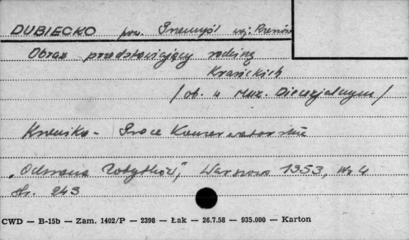 DUBIECKO pow. Przemyśl woj. Rzeszów
Obraz przedstawiający rodzinę
Krasickich
/ob. w Muz. Diecezjalnym/
Kronika - Prace Konserwatorskie
"Ochrona Zabytków", Warszawa 1953, Nr 4
str. 243
CWD — B-15b — Zam. 1402/P — 2398 — Łak — 26.7.58 — 935.000 — Karton